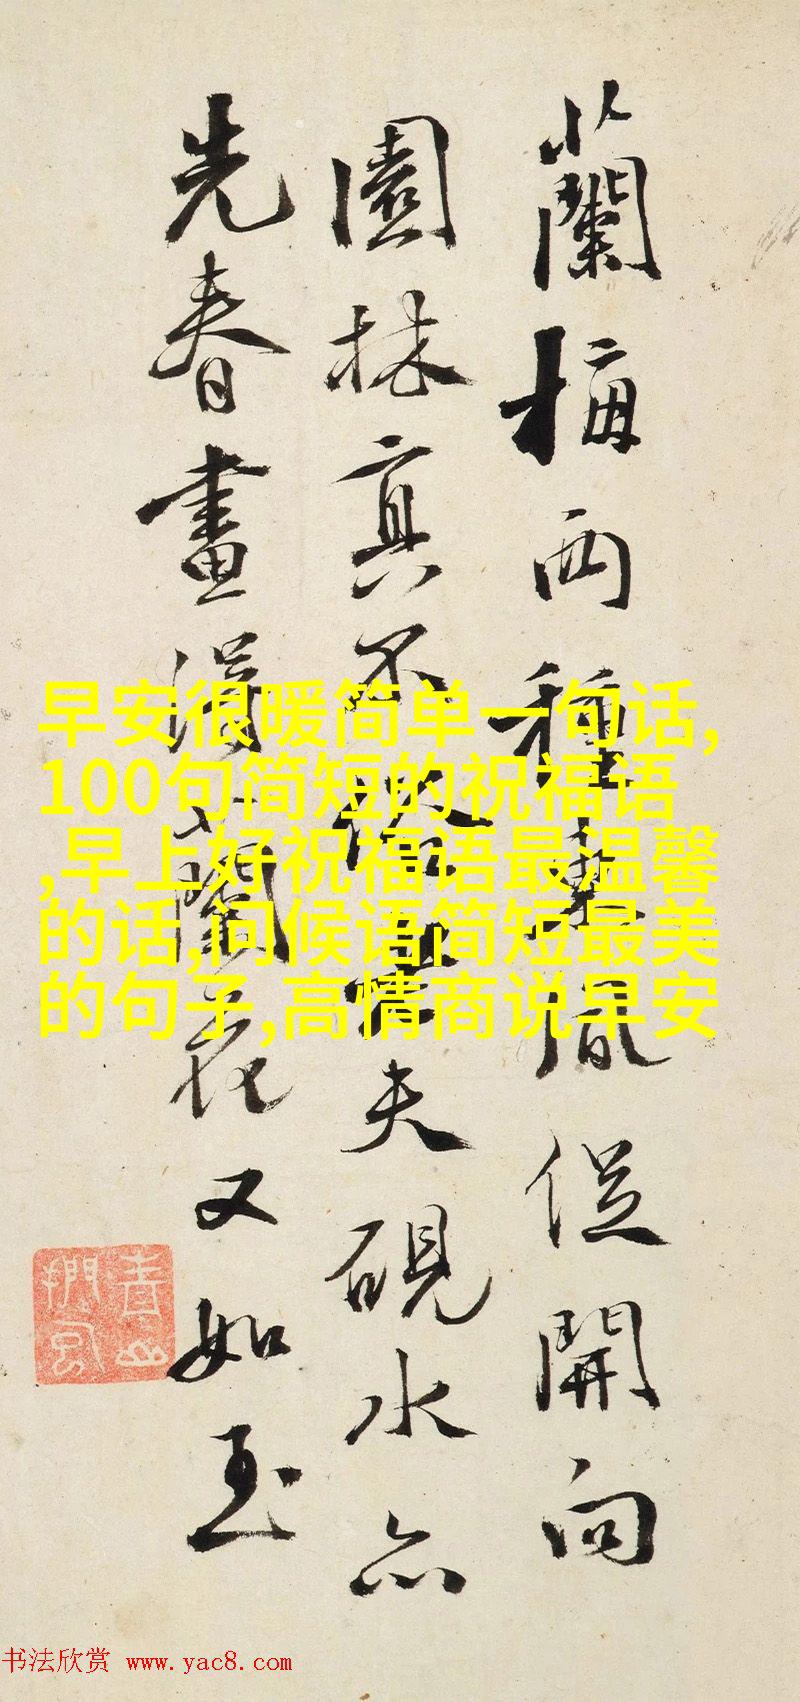 蘭梅兩種東風促開向
園林真不俗工夫硯水亦
先春畫得蘭花又如玉
早安很暖简单一句话,
100句简短的祝福语
,早上好祝福语最温馨
的话,问候语简短最美
的句子,高情商说早安
书法欣赏 www.yac8.com